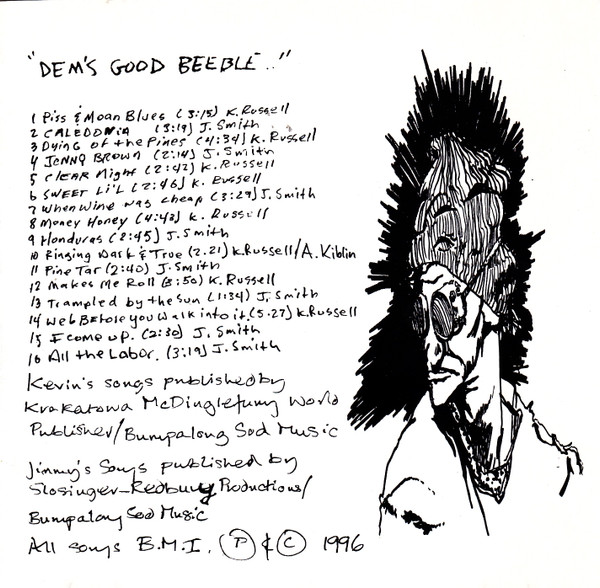 "DEM'S GOOD BEEBLE.."
1 Piss & Moan Blues (3:15) K. Russell
2 CALEDONIA (3:19) J. Smith
3 Dying of the Pines (4:34) K. Russell
4 JENNY BROWN (2:14) J. Smith
5 CLEAR Night (2:42) K. Russell
6 SWEET Li'L (2:46) K. Russell
7 When Wine was cheap (3:29) J. Smith
8 Money Honey (4:43) K. Russell
9 Honduras (2:45) J. Smith
10 Ringing Dark & True (2.21) K. Russell/A. Kiblin
11 Pine Tar (2:40) J. Smith
12 Makes Me Roll (3:50) K. Russell
13 Trampled by the Sun (1:34) J. Smith
14 Web Before you Walk into it. (5.27) K. Russell
15 I come up. (2:30) J. Smith
16 All the Labor. (3:19) J. Smith
Kevin's songs published by
Krakatowa McDinglefunny World
Publisher/Bumpalong Sod Music
Jimmy's Songs published by
Slosinger-Redbury Productions/
Bumpalong Sod Music
All songs B.M.I. Ⓟ & Ⓒ 1996